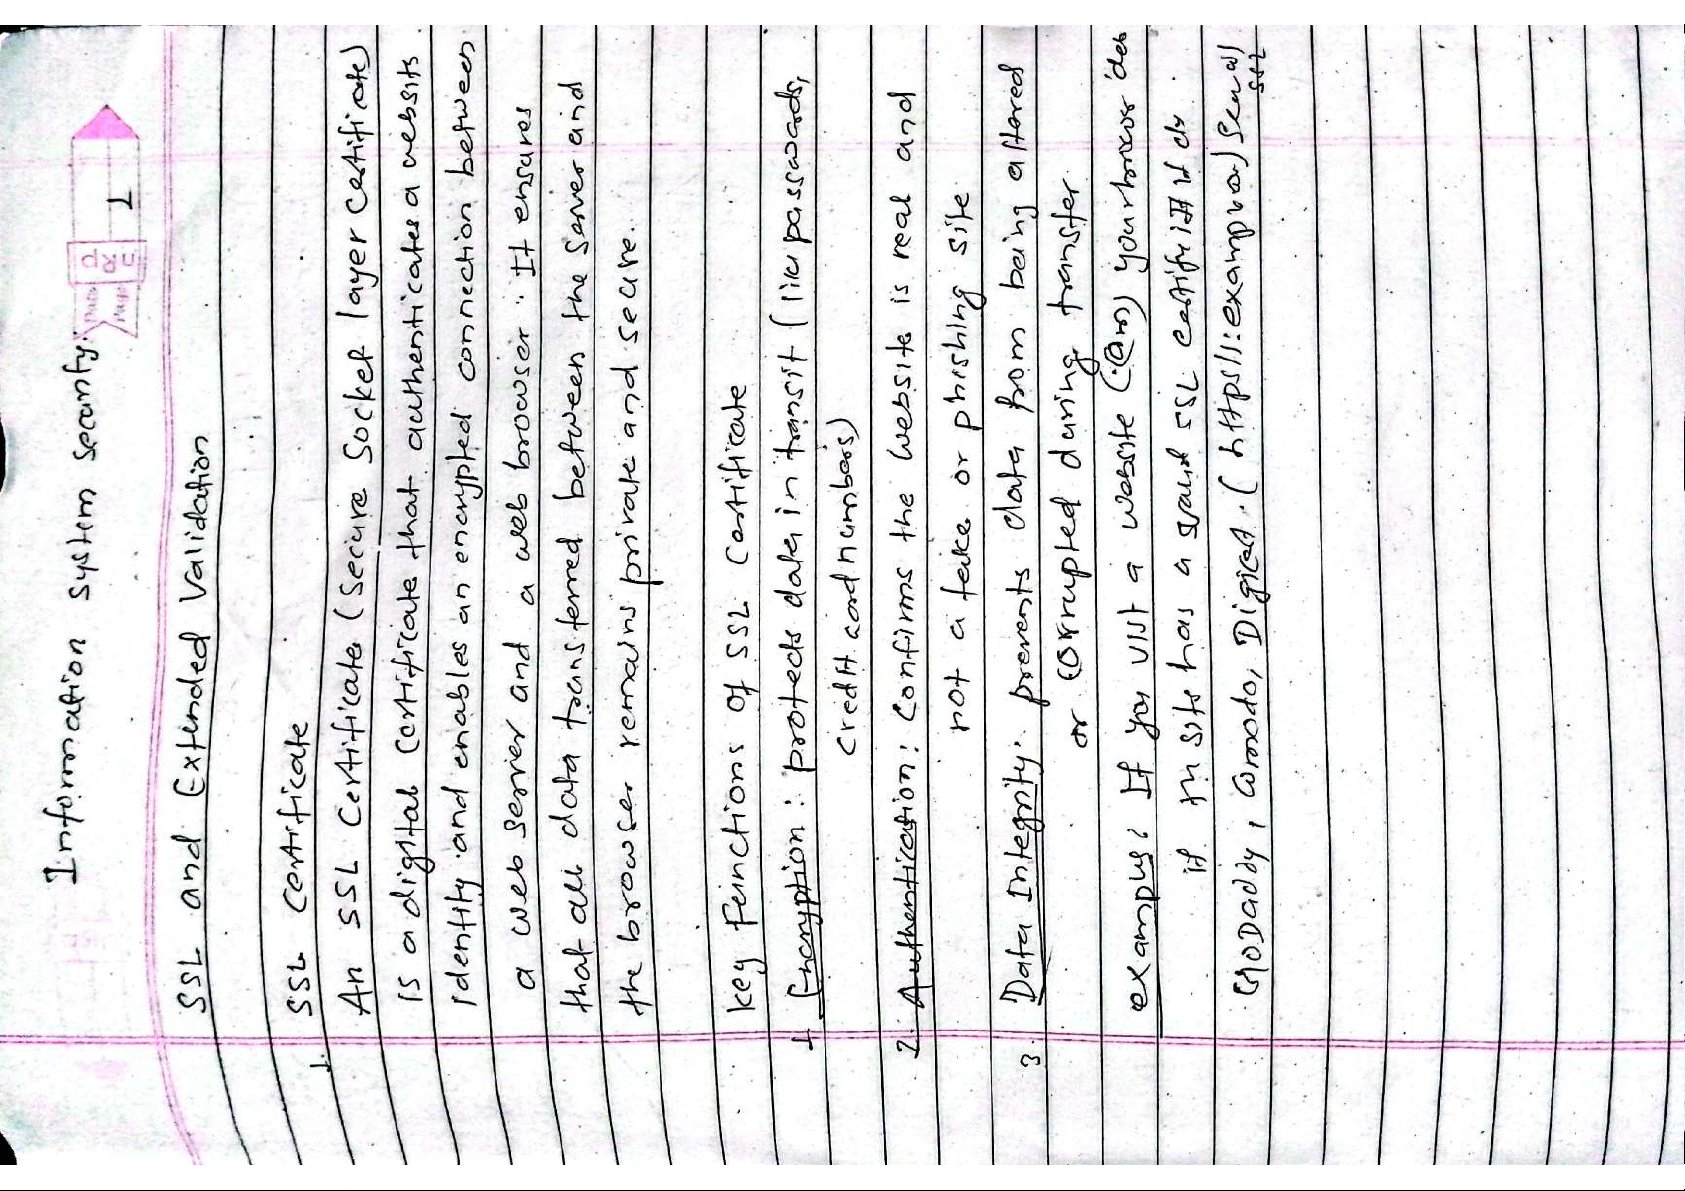 Information System Security.
1
SSL and Extended Validation
1. SSL Certificate
An SSL Certificate (Secure Socket layer certificate)
is a digital certificate that authenticates a websits
identity and enables an encrypted connection between
a web server and a web browser. It ensures
that all data transferred between the server and
the browser remains private and secure.
Key Functions of SSL Certificate
1 Encryption : protects data in transit (like passwords,
credit card numbers)
2. Authentication : Confirms the website is real and
not a fake or phishing site
3. Data Integrity. prevents data from being altered
or corrupted during transfer
example: If you visit a website your browser
if the site has a SSL
GoDaddy, Comodo, Digicert. (https//:example
SSL